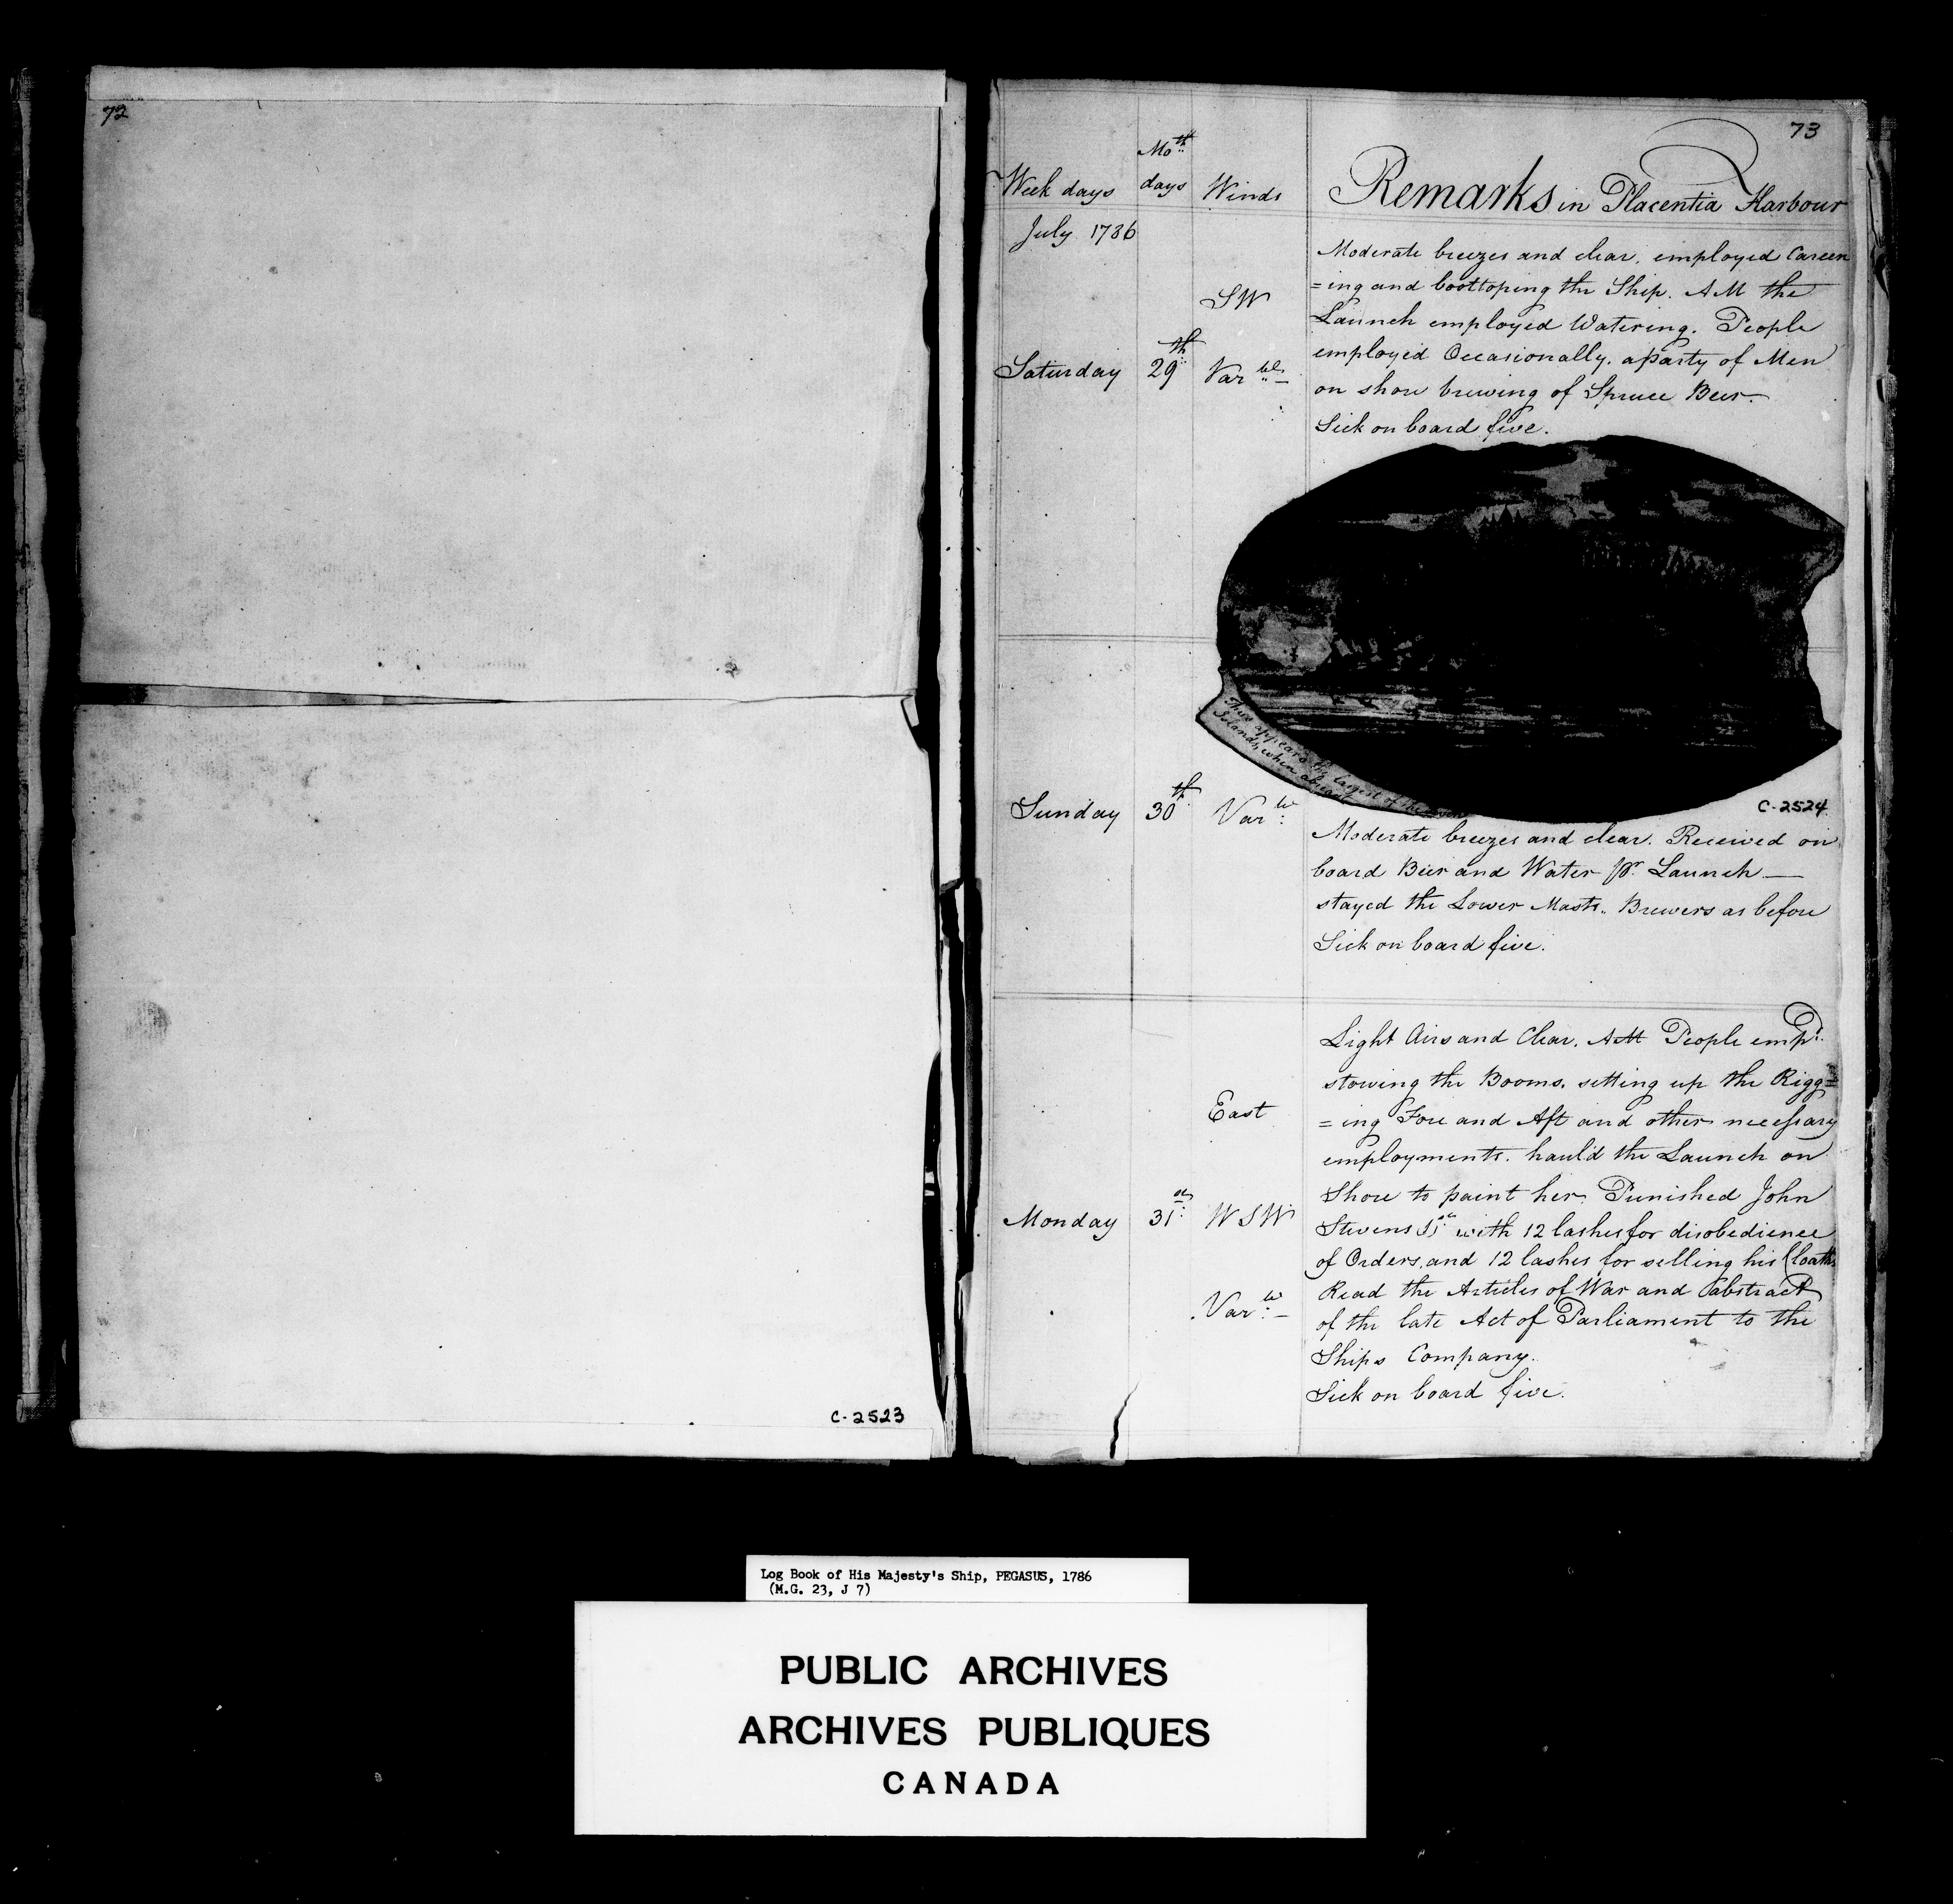 72
C-2523
73
Week days Mo.th days Winds Remarks in Placentia Harbour
July 1786
Moderate breezes and clear. employed Careen
=ing and boottoping the Ship. AM the
SW
Launch employed Watering. People
employed Occasionally. a party of Men
Saturday 29th Varble
on shore brewing of Spruce Beer.
Sick on board five.
Thus appears the largest of the
Islands, when abreast
C-2524
Sunday 30th Varble
Moderate breezes and clear. Received on
board Beer and Water pr. Launch
stayed the Lower Masts. Brewers as before
Sick on board five.
Light Airs and Clear. AM People empd.
stowing the Booms. setting up the Rigg=
East
=ing Fore and Aft and other necessary
employments. haul'd the Launch on
Shore to paint her. Punished John
Monday 31st WSW
Stevens with 12 lashes for disobedience
of Orders. and 12 lashes for selling his Cloaths
Read the Articles of War and abstract
Varble
of the late Act of Parliament to the
Ships Company.
Sick on board five.
Log Book of His Majesty's Ship, PEGASUS, 1786
(M.G. 23, J 7)
PUBLIC ARCHIVES
ARCHIVES PUBLIQUES
CANADA